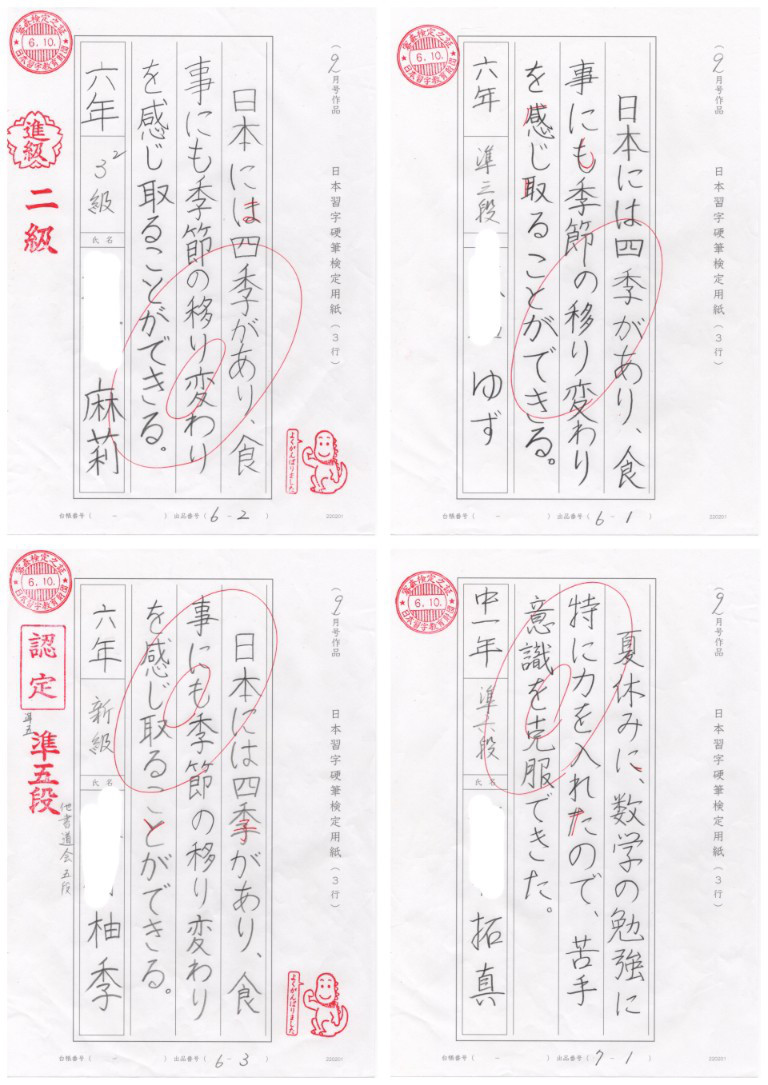 (9月号作品
日本習字硬筆検定用紙(3行)
日本には四季があり、食
事にも季節の移り変わり
を感じ取ることができる。
六年
3²級
氏名
麻莉
6.10.
進級
二級
よくがんばりました
台帳番号( - )
出品番号(6-2)
(9月号作品
日本習字硬筆検定用紙(3行)
日本には四季があり、食
事にも季節の移り変わり
を感じ取ることができる。
六年
準三段
ゆず
6.10.
台帳番号( - )
出品番号(6-1)
(9月号作品
日本習字硬筆検定用紙(3行)
日本には四季があり、食
事にも季節の移り変わり
を感じ取ることができる。
六年
新級
氏名
柚季
6.10.
認定
準五
準五段
他書道会五段
よくがんばりました
台帳番号( - )
出品番号(6-3)
(9月号作品
日本習字硬筆検定用紙(3行)
夏休みに、数学の勉強に
特に力を入れたので、苦手
意識を克服できた。
中一年
準六段
氏名
拓真
6.10.
台帳番号( - )
出品番号(7-1)